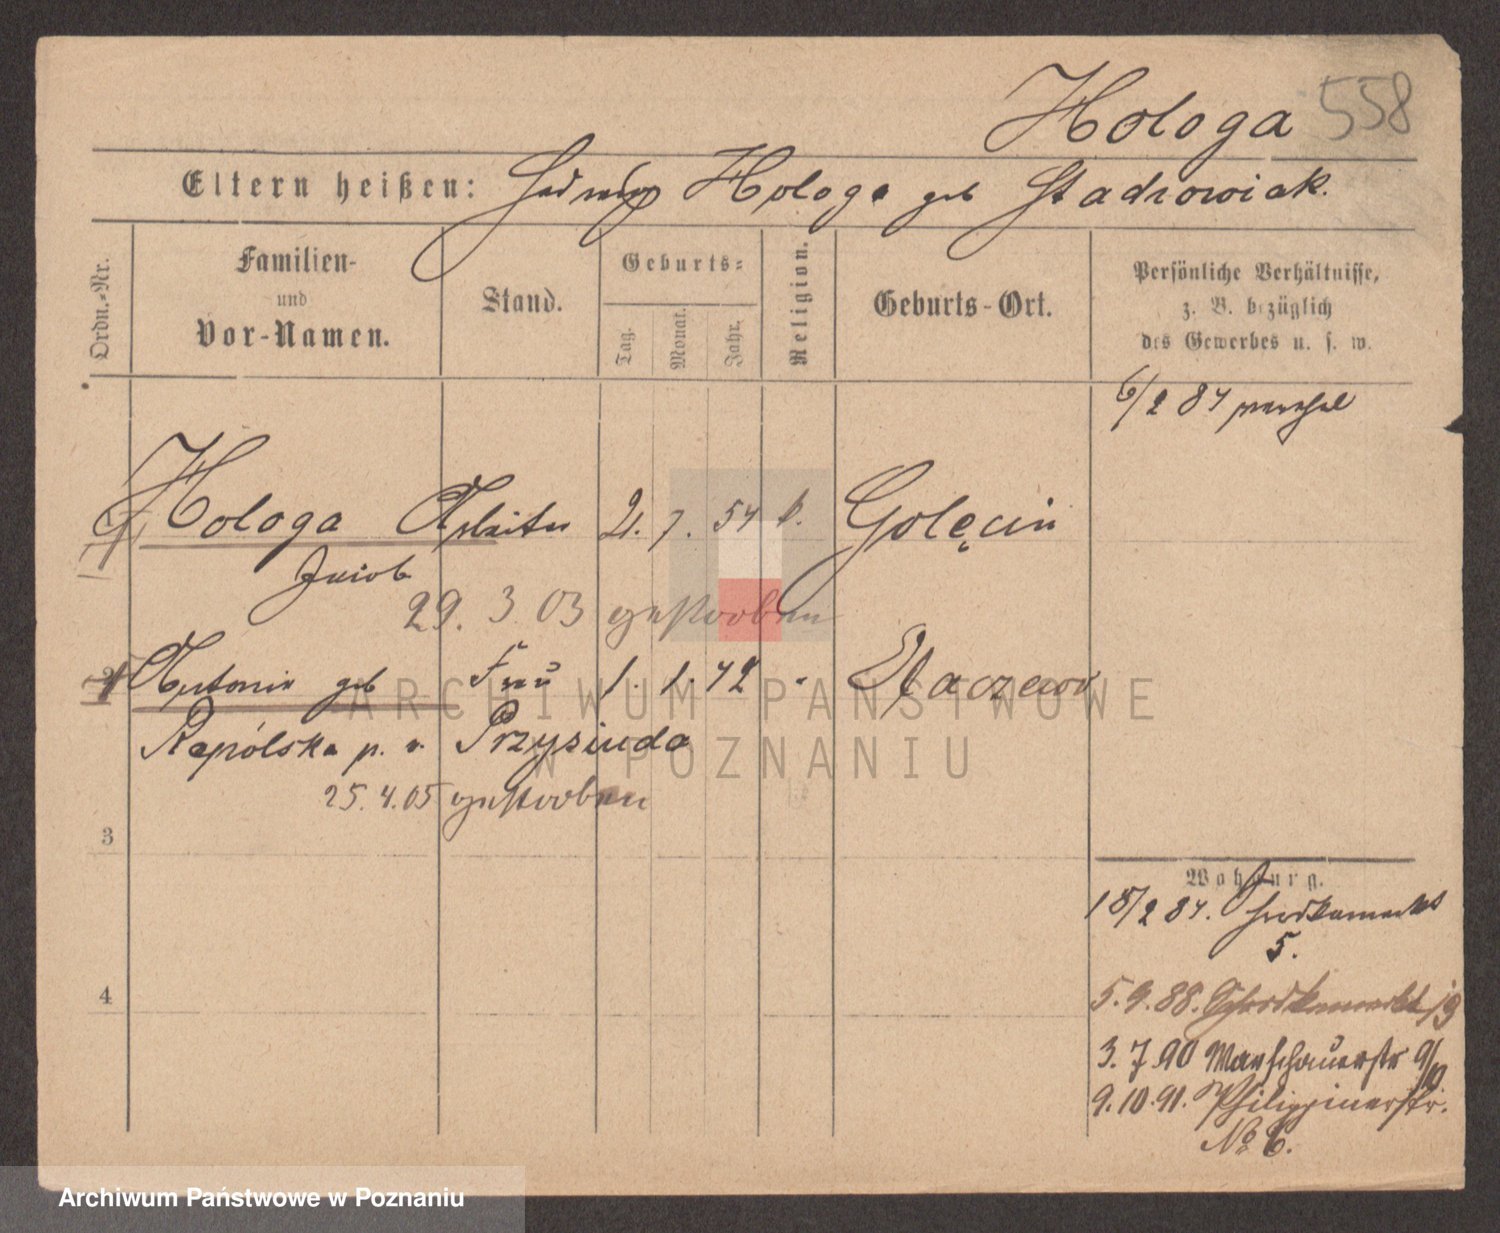 Hologa 558
Eltern heißen: Hedwig Hologa geb Stadrowiak.
Ordn.-Nr.
Familien-
und
Vor-Namen.
Stand.
Geburts-
Tag. Monat. Jahr.
Religion.
Geburts-Ort.
Persönliche Verhältnisse,
z. B. bezüglich
des Gewerbes u. s. w.
6/2 87
1 Hologa Arbeiter 21. 7. 54 k. Golęcin
Jacob
29. 3 03 gestorben
2 Antonie geb Frau 1. 1. 42
Rapólska p. v. Przysiuda
25.4.05 gestorben
3
4
Wohnung.
18/2 87. Schrodkamarkt
5.
5.9.88. Schrodkamarkt 19
3.7.90 Warschauerstr 9/10
9.10.91. Philippinerstr.
No 6.
ARCHIWUM PAŃSTWOWE
W POZNANIU
Archiwum Państwowe w Poznaniu